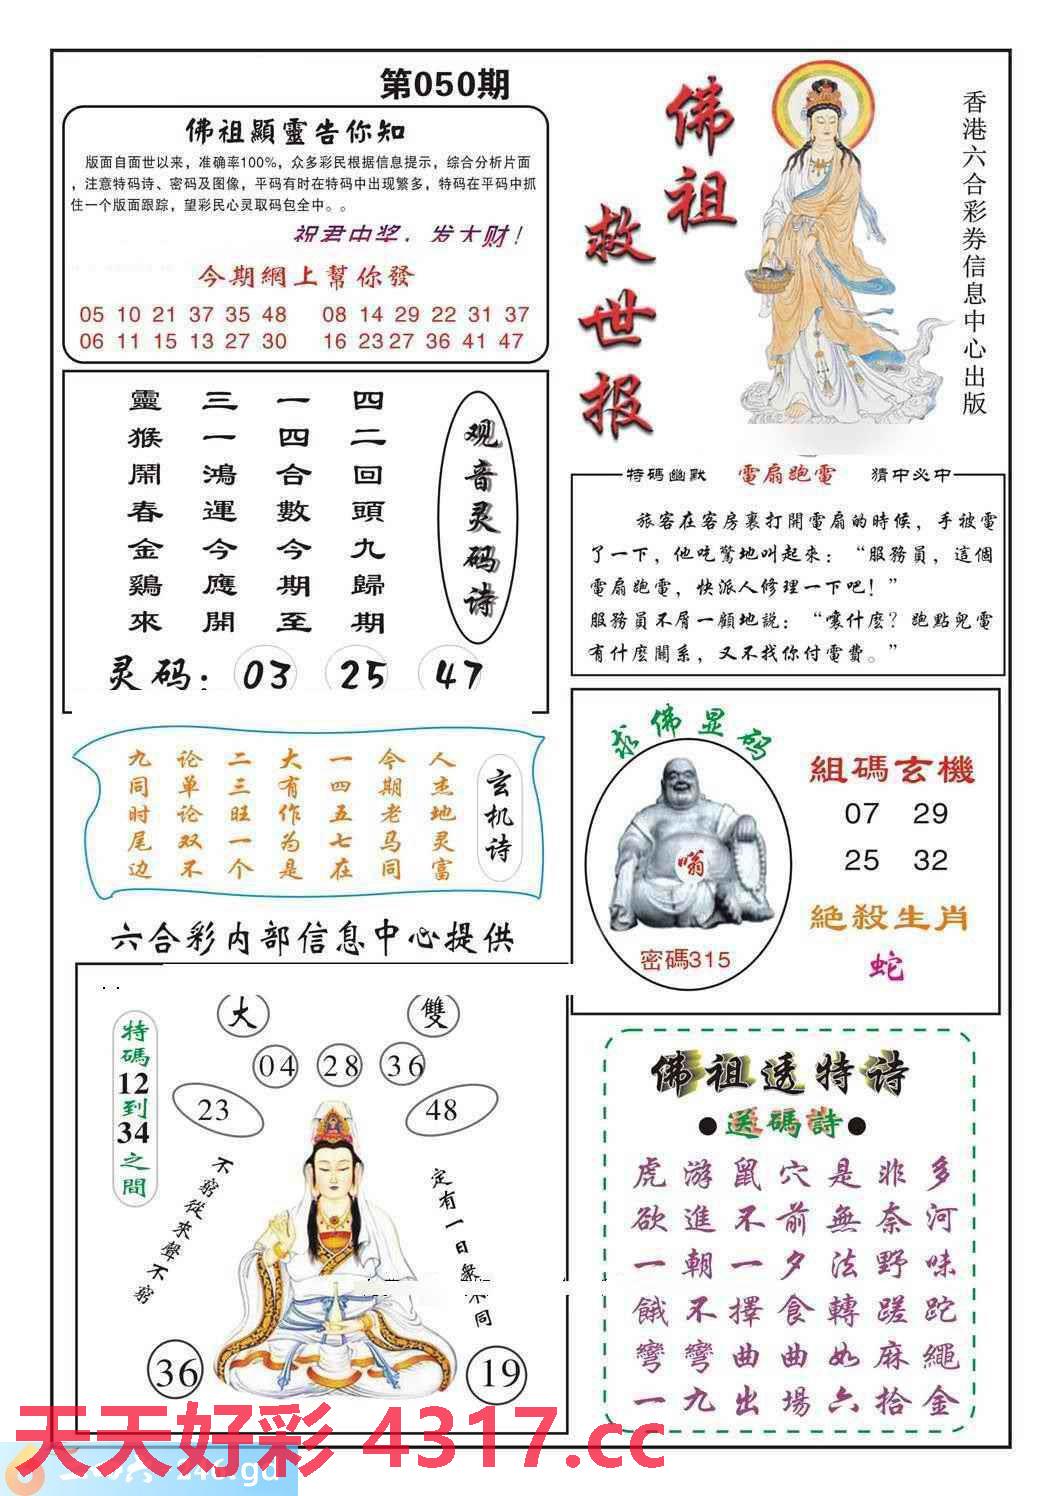 第050期
佛祖顯靈告你知
版面自面世以来，准确率100%，众多彩民根据信息提示，综合分析片面
，注意特码诗、密码及图像，平码有时在特码中出现繁多，特码在平码中抓
住一个版面跟踪，望彩民心灵取码包全中。。
祝君中奖，发大财！
今期網上幫你發
05 10 21 37 35 48
08 14 29 22 31 37
06 11 15 13 27 30
16 23 27 36 41 47
佛祖
救世报
香港六合彩券信息中心出版
观音灵码诗
四二回頭九歸期
一四合數今期至
三一鴻運今應開
靈猴鬧春金鷄來
灵码：03 25 47
特码幽默 電扇跑電 猜中必中
旅客在客房裏打開電扇的時候，手被電
了一下，他吃驚地叫起來：“服務員，這個
電扇跑電，快派人修理一下吧！”
服務員不屑一顧地説：“嚷什麼？跑點兒電
有什麼關系，又不找你付電費。”
玄机诗
人杰地灵富
今期老马同
一四五七在
大有作为是
二三旺一个
论单论双不
九同时尾边
求佛显码
密碼315
組碼玄機
07 29
25 32
絶殺生肖
蛇
六合彩内部信息中心提供
特碼12到34之間
大
雙
04 28 36
23
48
不窮從來聲不窮
定有一日衆不同
36
19
佛祖透特诗
●送碼詩●
虎游鼠穴是非多
欲進不前無奈河
一朝一夕法野味
餓不擇食轉蹉跎
彎彎曲曲如麻繩
一九出場六拾金
天天好彩 4317.cc
246.gd